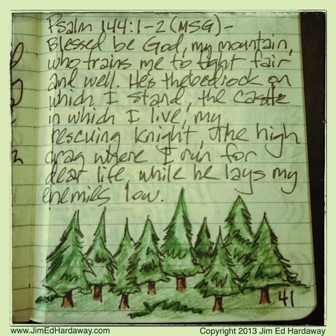 Psalm 144:1-2 (MSG) -
Blessed be God, my mountain,
who trains me to fight fair
and well. He's the bedrock on
which I stand, the castle
in which I live, my
rescuing knight, the high
crag where I run for
dear life, while he lays my
enemies low.
41
www.JimEdHardaway.com
Copyright 2013 Jim Ed Hardaway